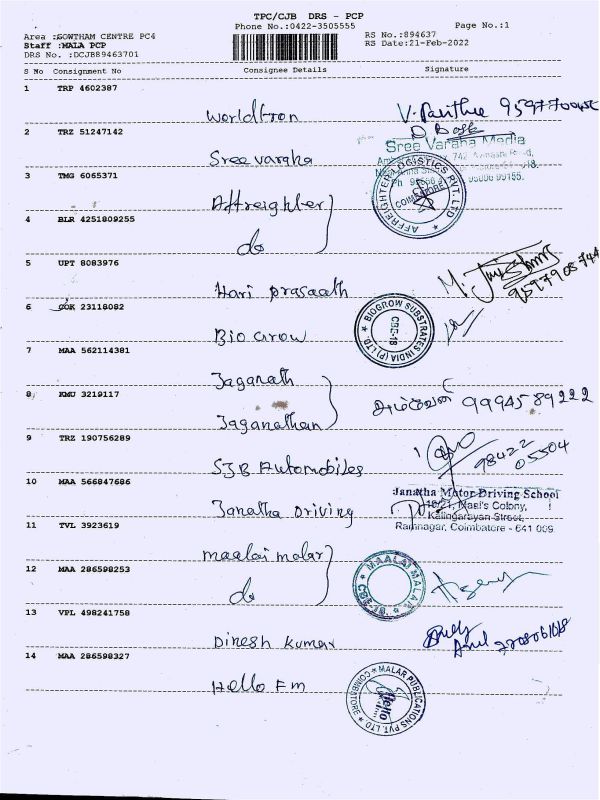 TPC/CJB DRS - PCP
Phone No.:0422-3505555
Page No.:1
Area :GOWTHAM CENTRE PC4
RS No.:894637
Staff :MALA PCP
RS Date:21-Feb-2022
DRS No. :DCJB89463701
S No Consignment No Consignee Details Signature
1 TRP 4602387
Worldtron 
2 TRZ 51247142
Sree varaha
Sree Varaha Media
3 TMG 6065371
Affreighter
AFFREIGHTER LOGISTICS PVT. LTD
COIMBATORE
4 BLR 4251809255
do
5 UPT 8083976
Hari prasaath
6 COK 23118082
Bio Grow
BIOGROW SUBSTRATES INDIA (P) LTD
CBE-18
7 MAA 562114381
Jaganath
8 KMU 3219117
Jaganathan
9994589222
9 TRZ 190756289
SJB Automobiles
98422
05504
10 MAA 566847686
Janatha Driving
Janatha Motor Driving School
Masi's Colony,
Kalingarayan Street,
Ramnagar, Coimbatore - 641 009.
11 TVL 3923619
maalai malar
MAALAI MALAR
12 MAA 286598253
do
13 VPL 498241758
Dinesh Kumar
14 MAA 286598327
Hello Fm
MALAR PUBLICATIONS PVT. LTD
COIMBATORE
Hello